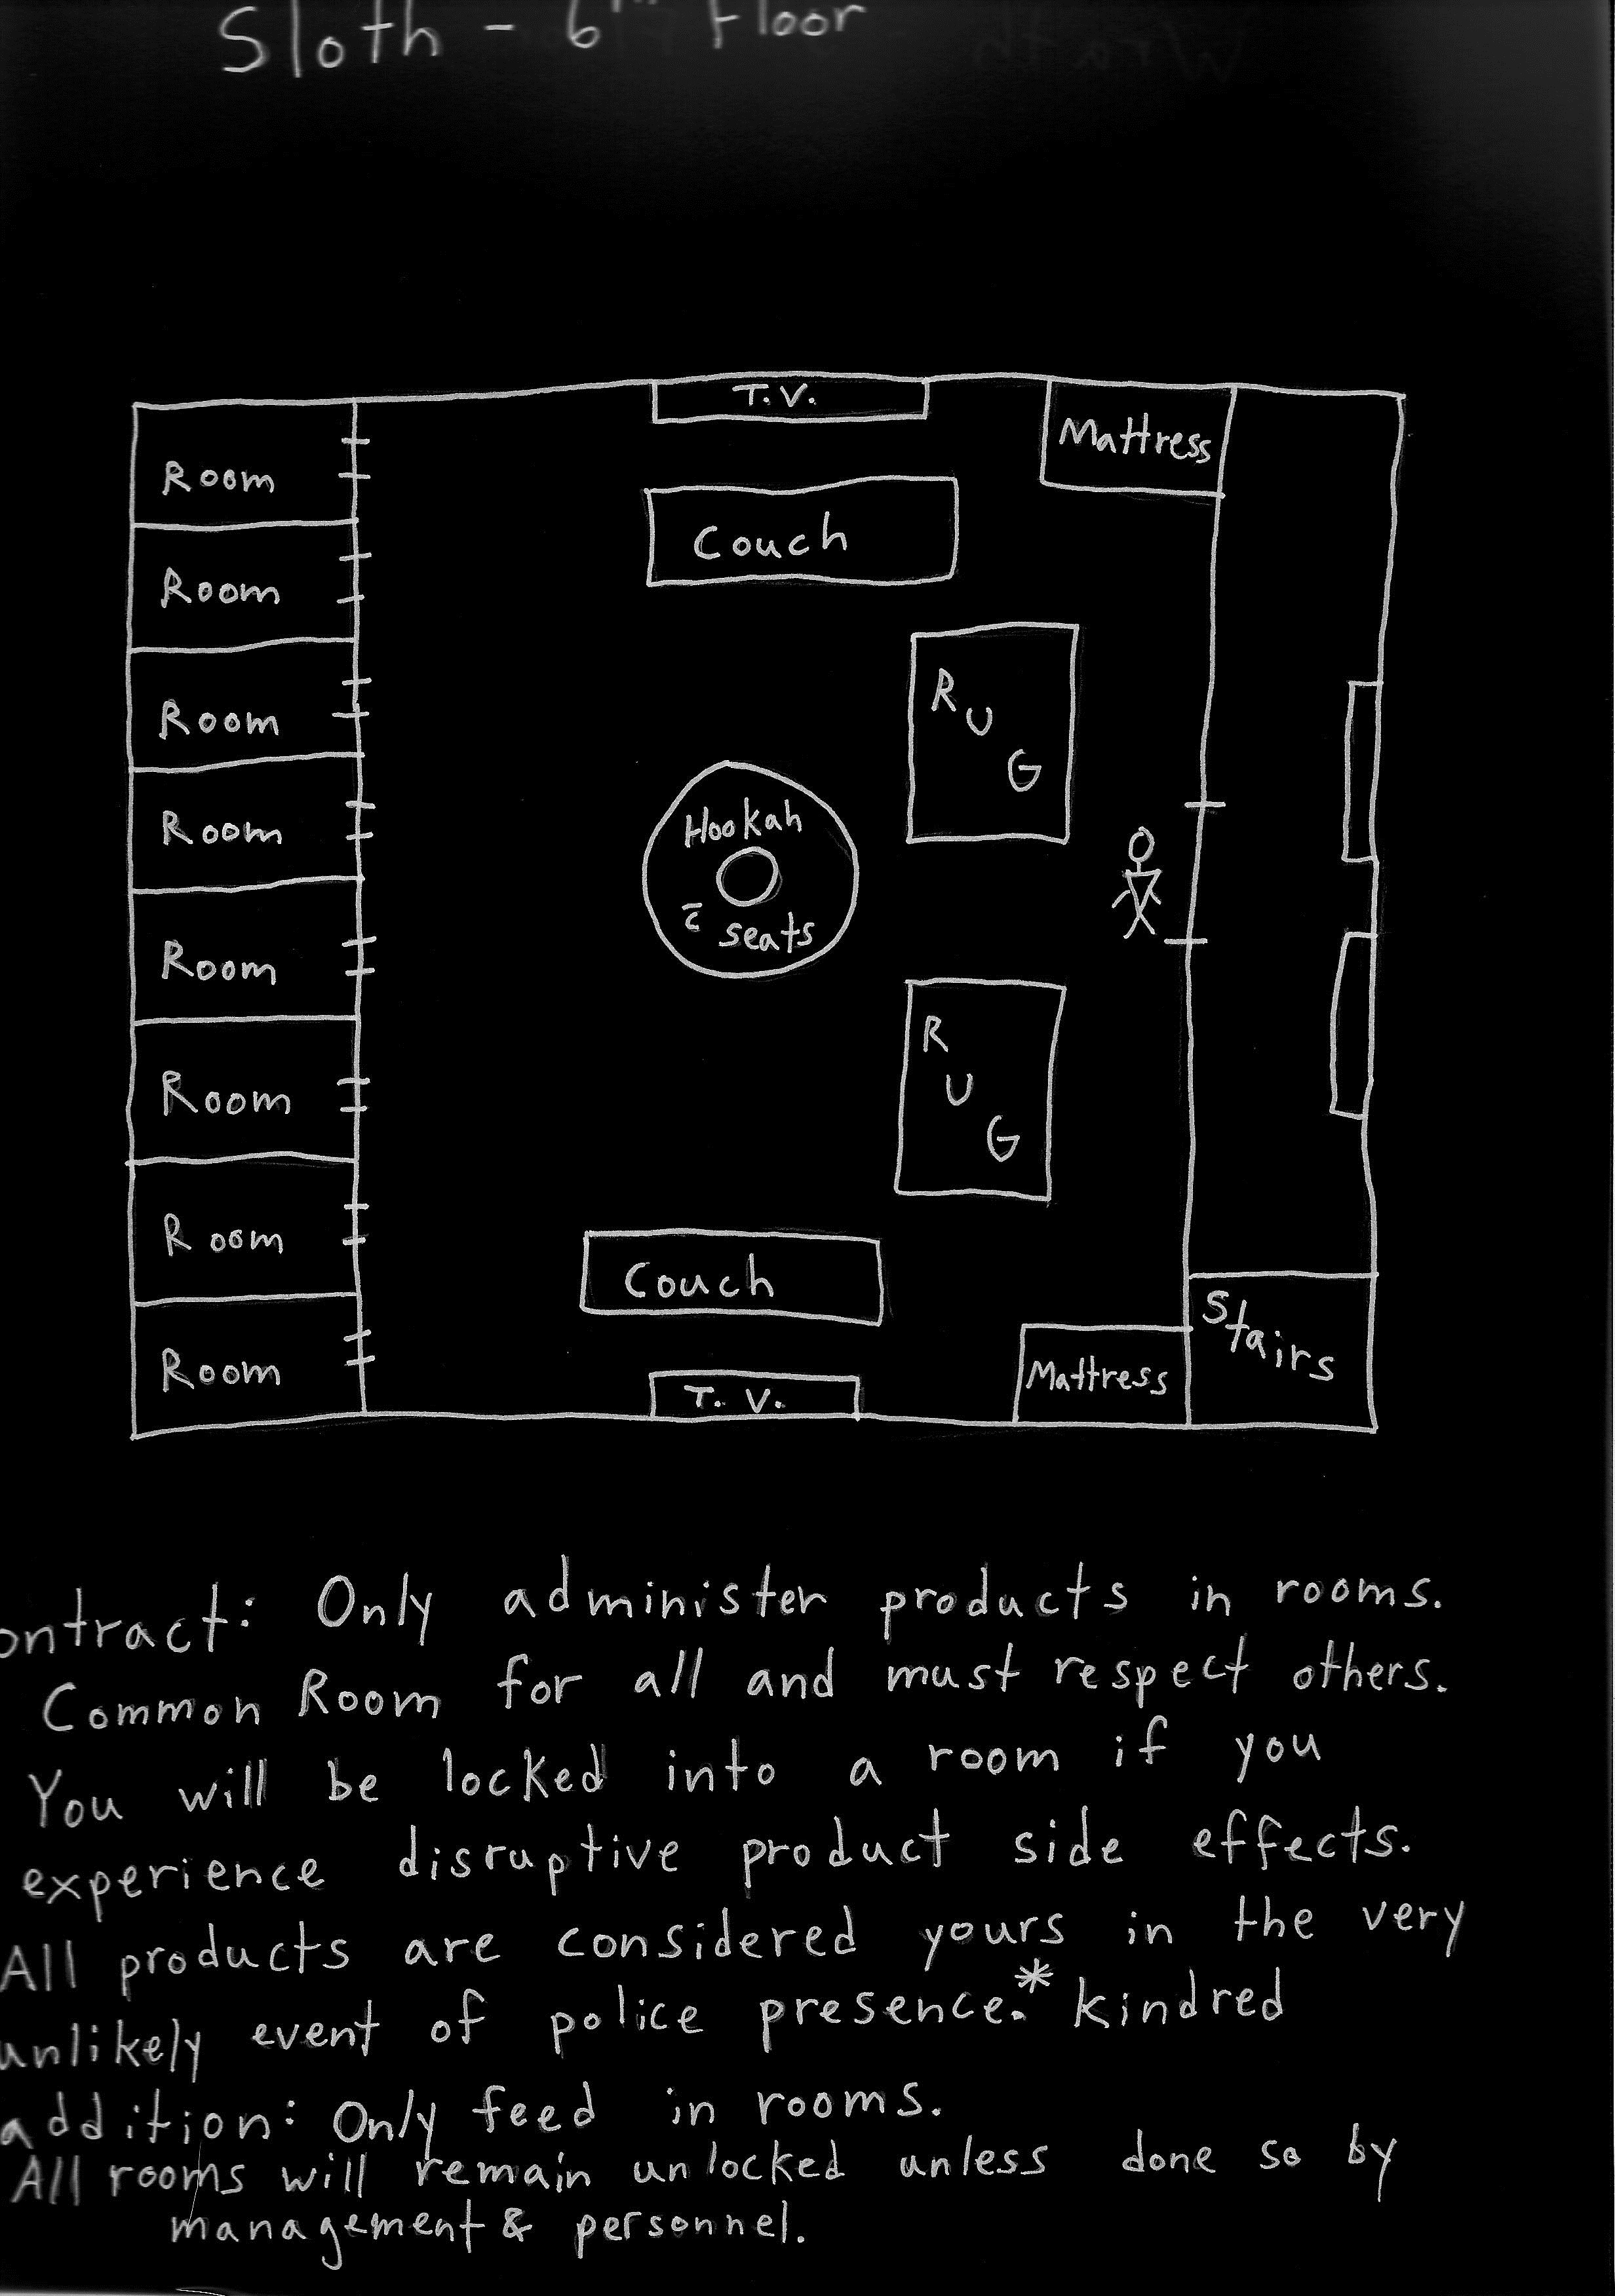 Sloth - 6th Floor
Wrath
T.V.
Mattress
Room
Couch
Room
RUG
Room
Hookah
Room
c̄ seats
Room
RUG
Room
Room
Couch
Stairs
Room
Mattress
T.V.
ontract: Only administer products in rooms.
Common Room for all and must respect others.
You will be locked into a room if you
experience disruptive product side effects.
All products are considered yours in the very
unlikely event of police presence.* Kindred
addition: Only feed in rooms.
All rooms will remain unlocked unless done so by
management & personnel.